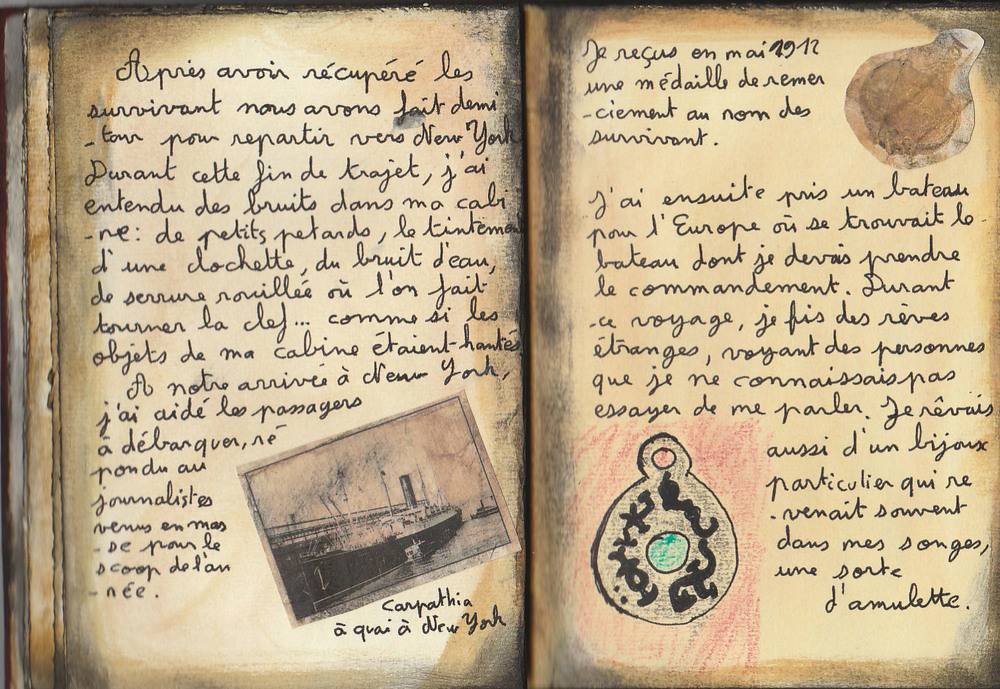 Après avoir récupéré les
survivant nous avons fait demi
-tour pour repartir vers New York
Durant cette fin de trajet, j'ai
entendu des bruits dans ma cabi
-ne: de petits petards, le tintement
d'une clochette, du bruit d'eau,
de serrure rouillée où l'on fait
tourner la clef... comme si les
objets de ma cabine étaient hantés.
A notre arrivée à New York,
j'ai aidé les passagers
à débarquer, ré
pondu au
journalistes
venus en mas
-se pour le
scoop de l'an
-née.
Carpathia
à quai à New York
Je reçus en mai 1912
une médaille de remer
-ciement au nom des
survivant.
J'ai ensuite pris un bateau
pour l'Europe où se trouvait le
bateau dont je devais prendre
le commandement. Durant
-ce voyage, je fis des rêves
étranges, voyant des personnes
que je ne connaissais pas
essayer de me parler. Je rêvais
aussi d'un bijoux
particulier qui re
-venait souvent
dans mes songes,
une sorte
d'amulette.